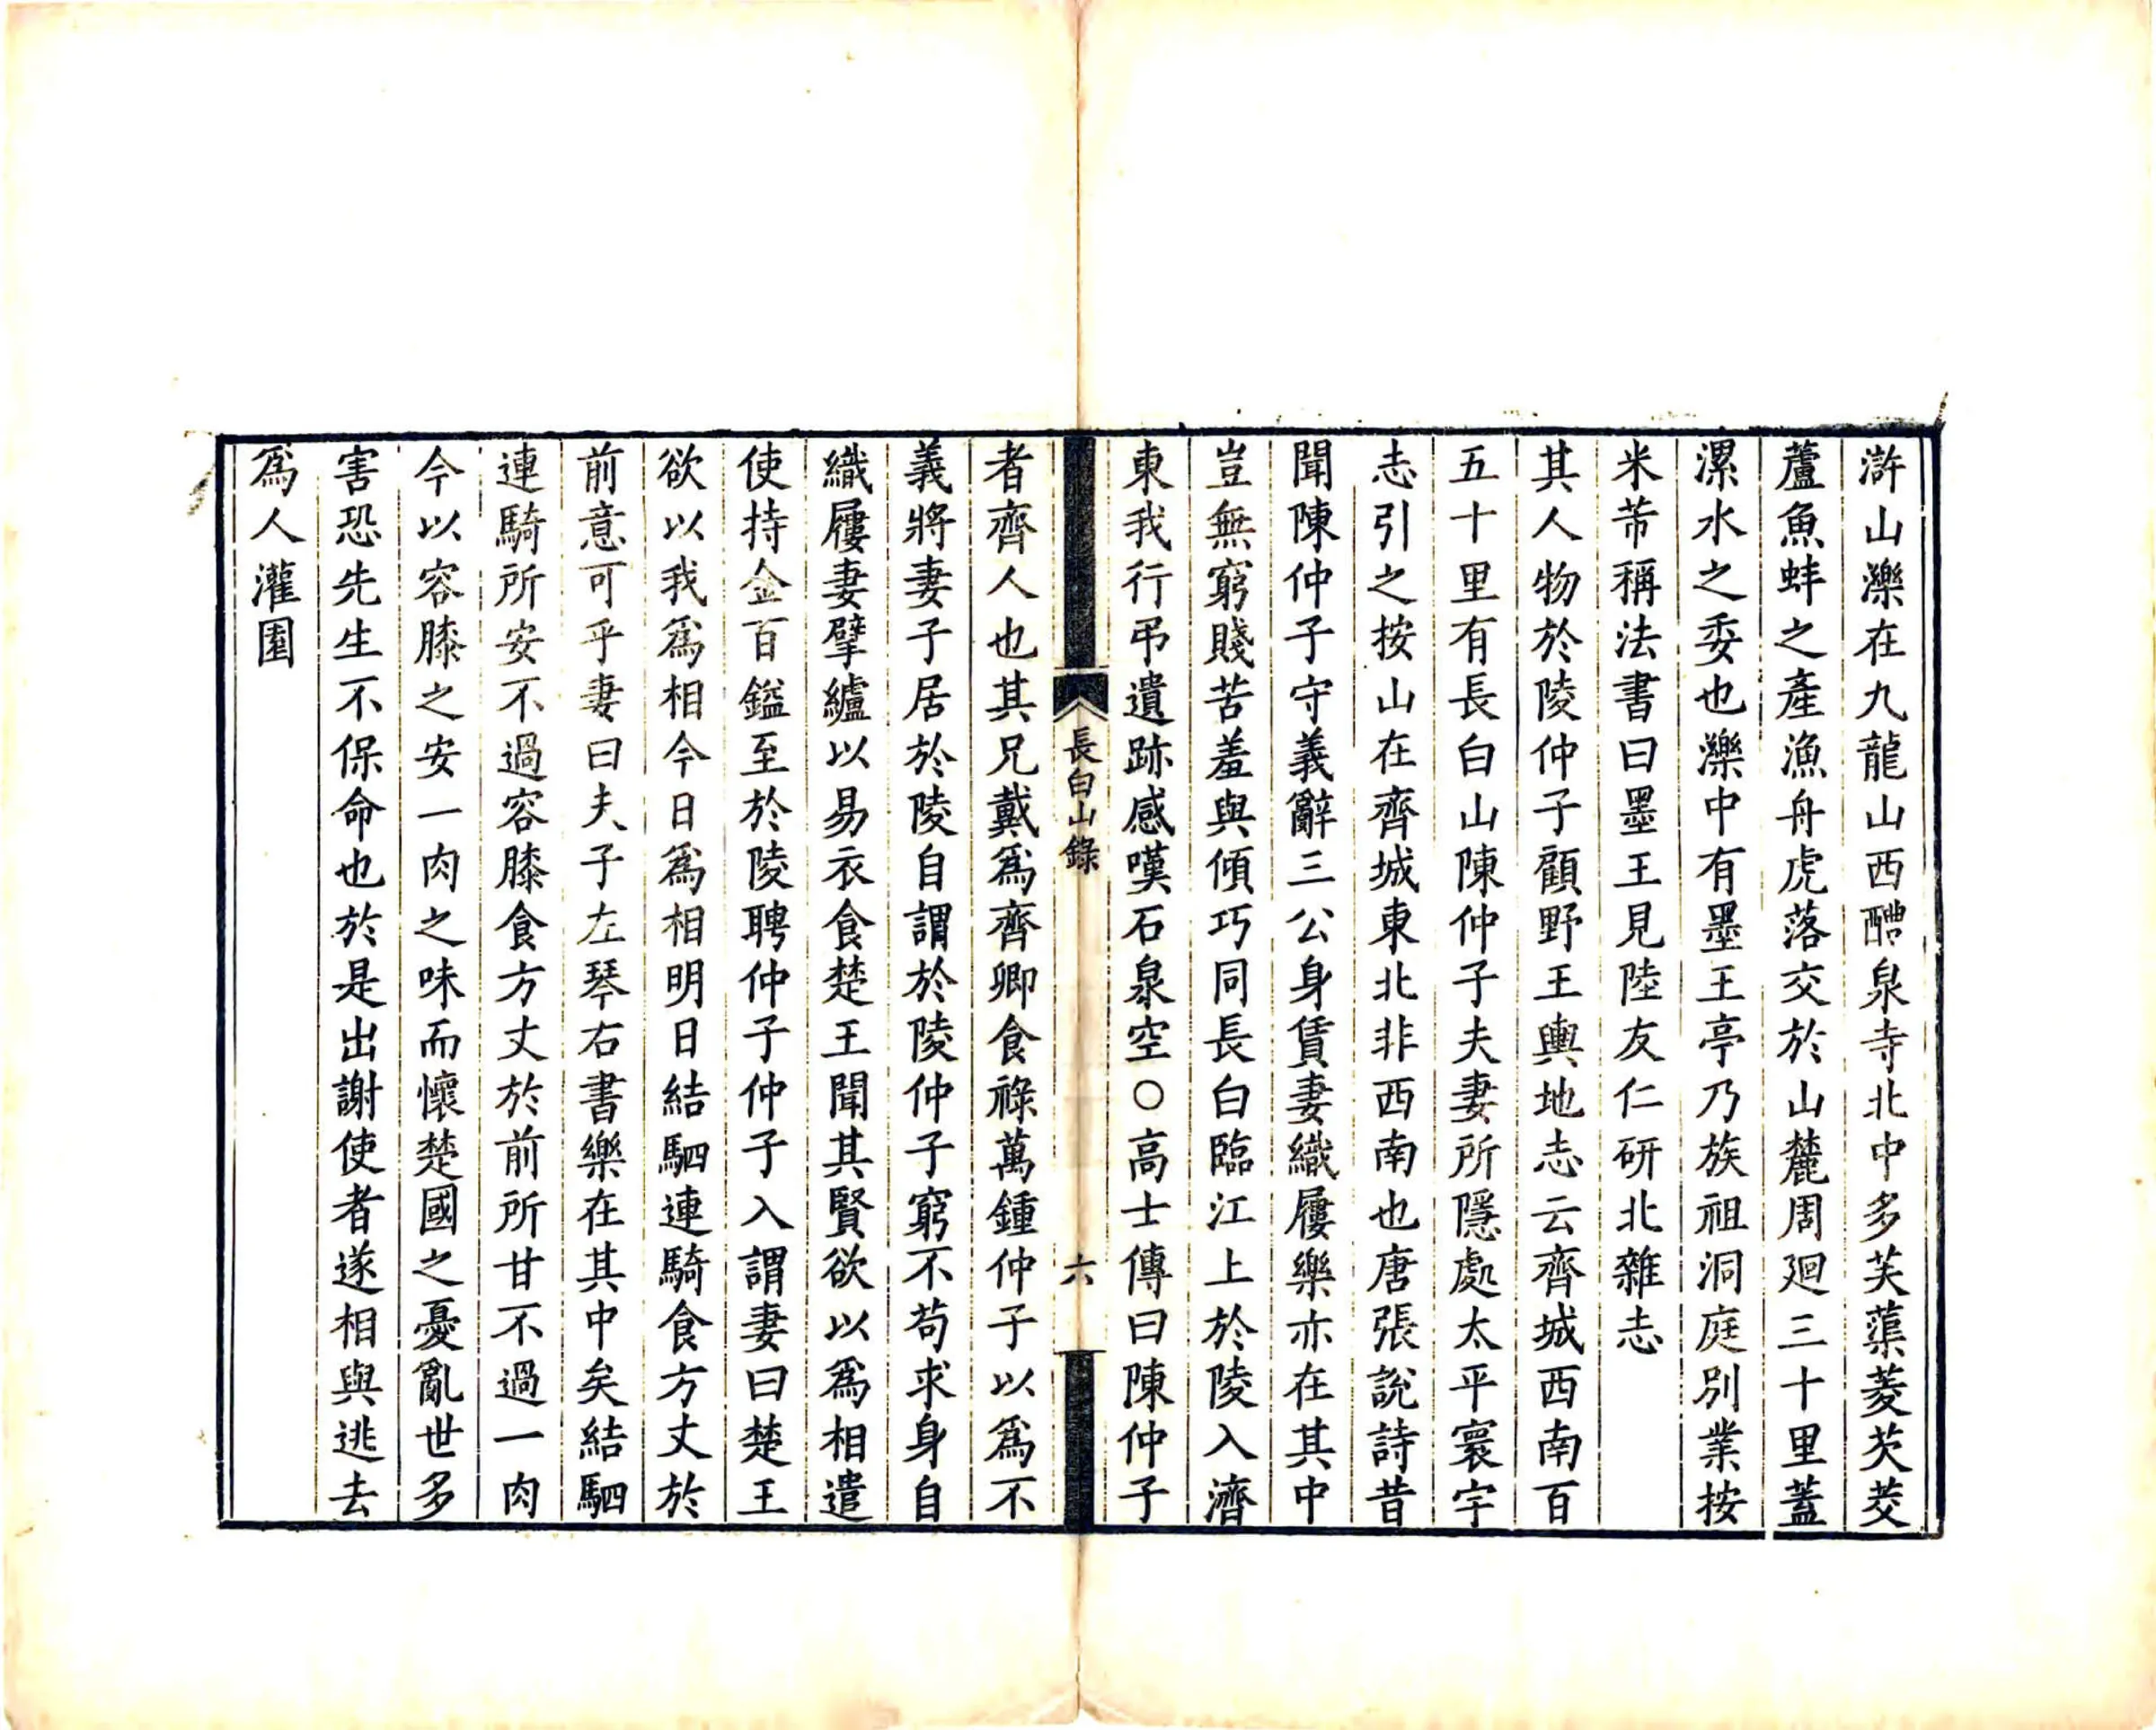 滸山濼在九龍山西醴泉寺北中多芙蕖菱芡茭
蘆魚蚌之產漁舟虎落交於山麓周廻三十里蓋
漯水之委也濼中有墨王亭乃族祖洞庭別業按
米芾稱法書曰墨王見陸友仁研北雜志
其人物於陵仲子顧野王輿地志云齊城西南百
五十里有長白山陳仲子夫妻所隱處太平寰宇
志引之按山在齊城東北非西南也唐張說詩昔
聞陳仲子守義辭三公身賃妻織屨樂亦在其中
豈無窮賤苦羞與傾巧同長白臨江上於陵入濟
東我行弔遺跡感嘆石泉空○高士傳曰陳仲子
長白山錄
六
者齊人也其兄戴爲齊卿食祿萬鍾仲子以爲不
義將妻子居於陵自謂於陵仲子窮不苟求身自
織屨妻擘纑以易衣食楚王聞其賢欲以爲相遣
使持金百鎰至於陵聘仲子仲子入謂妻曰楚王
欲以我爲相今日爲相明日結駟連騎食方丈於
前意可乎妻曰夫子左琴右書樂在其中矣結駟
連騎所安不過容膝食方丈於前所甘不過一肉
今以容膝之安一肉之味而懷楚國之憂亂世多
害恐先生不保命也於是出謝使者遂相與逃去
爲人灌園